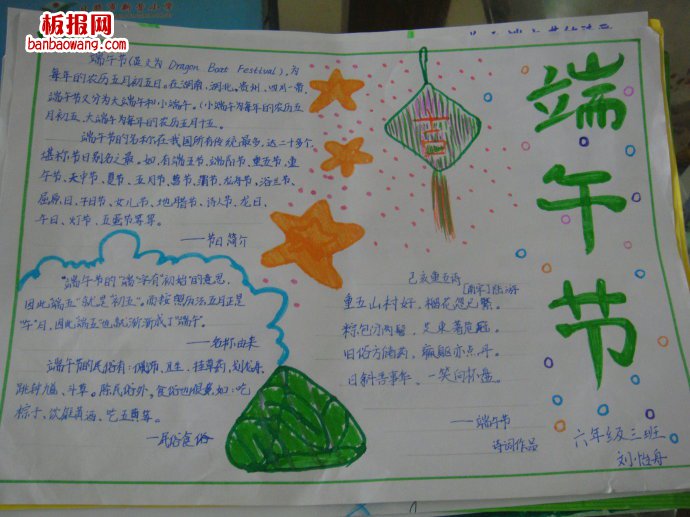 板报网
banbaowang.com
端午节
端午节(英文为 Dragon Boat Festival),为
每年的农历五月初五日。在湖南、湖北、贵州、四川一带,
端午节又分为大端午和小端午。(小端午为每年的农历五
月初五、大端午为每年的农历五月十五。
端午节的名称在我国所有传统最多,达二十多个,
堪称节日别名之最。如,有端五节、端阳节、重五节、重
午节、天中节、夏节、五月节、菖节、蒲节、龙舟节、浴兰节、
屈原日、午日节、女儿节、地腊节、诗人节、龙日、
午日、灯节、五蛋节等等。
——节日简介
"端午节的"端"字有"初始"的意思,
因此"端五"就是"初五"。而按照历法五月正是
"午"月,因此"端五"也就渐渐成了"端午"。
——名称由来
端午节的民俗有:佩饰、卫生、挂草药、划龙舟、
跳钟馗、斗草。除民俗外,食俗也很象如:吃
粽子、饮雄黄酒、吃五黄等。
——民俗食俗
己亥重五诗
[南宋]陆游
重五山村好,榴花忽已繁。
粽包分两髻,艾束著危冠。
旧俗方储药,羸躯亦点丹。
日斜吾事毕,一笑向杯盘。
——端午节
诗词作品
六年级三班
刘怡舟